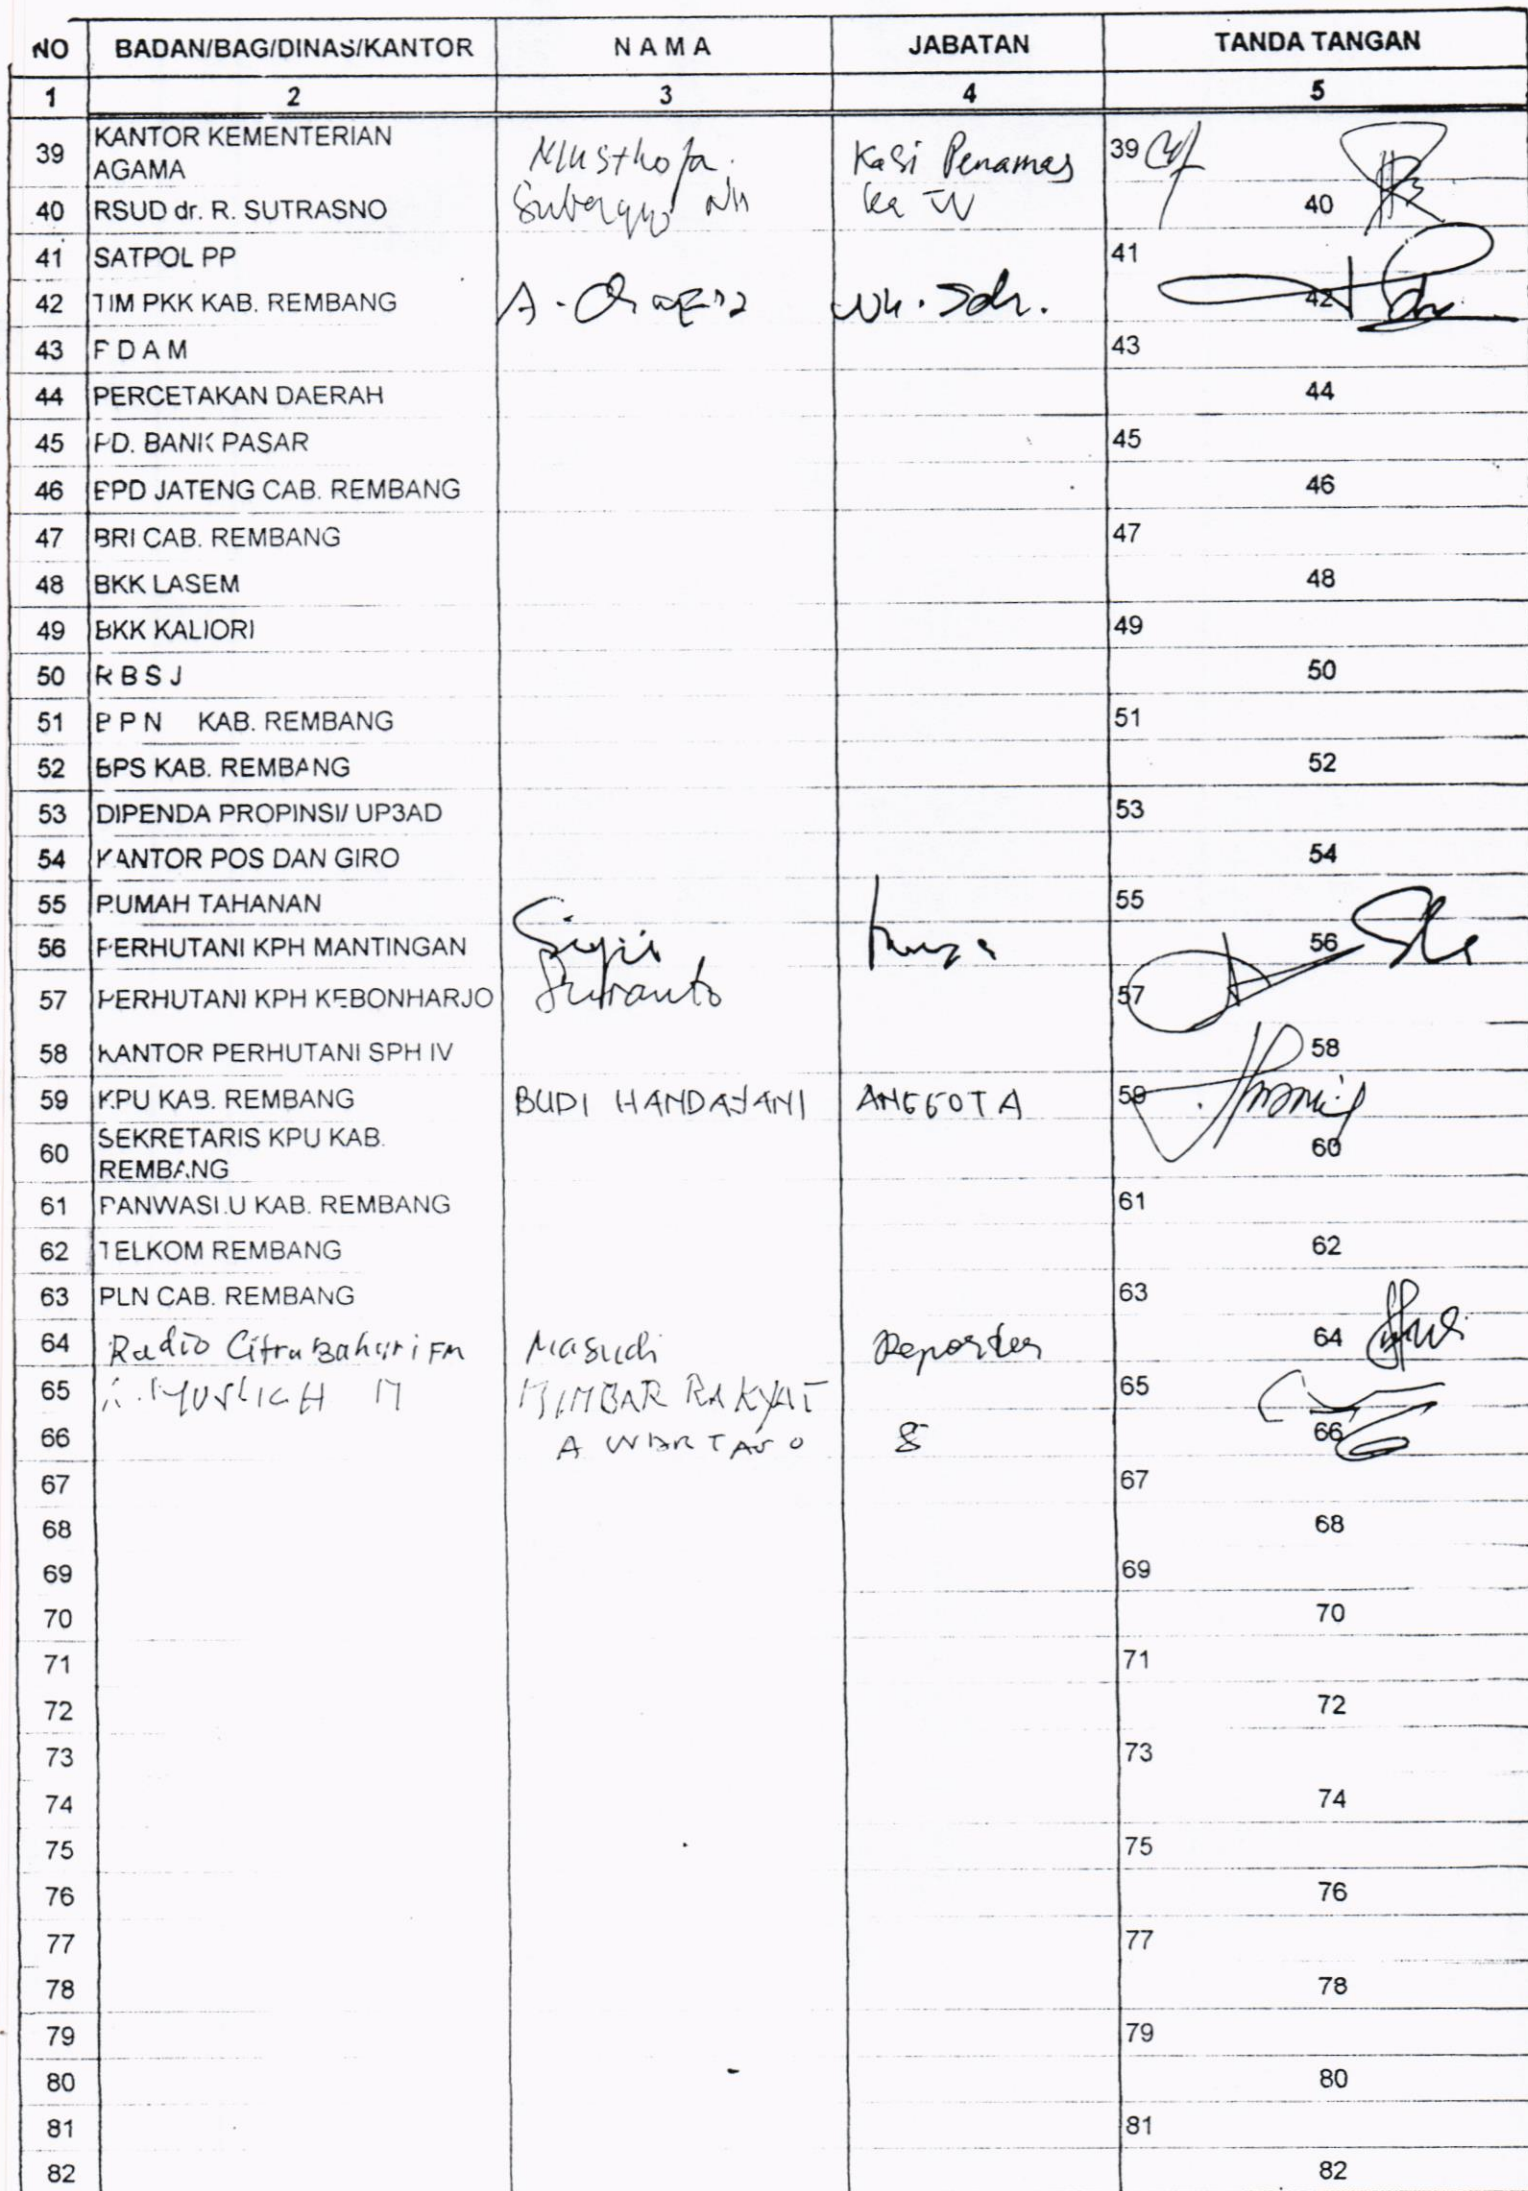 NO BADAN/BAG/DINAS/KANTOR N A M A JABATAN TANDA TANGAN
1 2 3 4 5
39 KANTOR KEMENTERIAN AGAMA Musthofa. Kasi Penamas 39
40 RSUD dr. R. SUTRASNO 40
41 SATPOL PP 41
42 TIM PKK KAB. REMBANG A. 42
43 P D A M 43
44 PERCETAKAN DAERAH 44
45 PD. BANK PASAR 45
46 BPD JATENG CAB. REMBANG 46
47 BRI CAB. REMBANG 47
48 BKK LASEM 48
49 BKK KALIORI 49
50 R B S J 50
51 P P N KAB. REMBANG 51
52 BPS KAB. REMBANG 52
53 DIPENDA PROPINSI/ UP3AD 53
54 KANTOR POS DAN GIRO 54
55 RUMAH TAHANAN 55
56 PERHUTANI KPH MANTINGAN 56
57 PERHUTANI KPH KEBONHARJO 57
58 KANTOR PERHUTANI SPH IV 58
59 KPU KAB. REMBANG BUDI HANDAYANI ANGGOTA 59
60 SEKRETARIS KPU KAB. REMBANG 60
61 PANWASLU KAB. REMBANG 61
62 TELKOM REMBANG 62
63 PLN CAB. REMBANG 63
64 Radio Citra Bahari FM Masudi Reporter 64
65 MUSLICH M MIMBAR RAKYAT 65
66 66
67 67
68 68
69 69
70 70
71 71
72 72
73 73
74 74
75 75
76 76
77 77
78 78
79 79
80 80
81 81
82 82